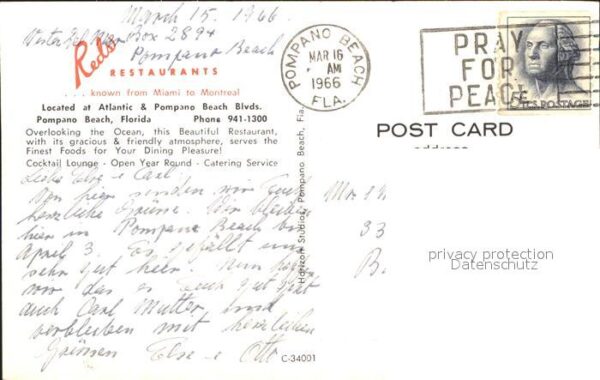 March 15. 1966
Box 2894
Pompano Beach
Reds
RESTAURANTS
... known from Miami to Montreal
Located at Atlantic & Pompano Beach Blvds.
Pompano Beach, Florida Phone 941-1300
Overlooking the Ocean, this Beautiful Restaurant,
with its gracious & friendly atmosphere, serves the
Finest Foods for Your Dining Pleasure!
Cocktail Lounge - Open Year Round - Catering Service
Liebe Else & Carl.
Von hier senden wir Euch
herzliche Grüsse. Wir bleiben
hier in Pompano Beach bis
April 3. Es gefällt uns
sehr gut hier. Nun hoffen
wir das es Euch gut geht
auch Carl Mutter. Und
verbleiben mit herzlichen
Grüssen Else & Otto
C-34001
Horizon Studios, Pompano Beach, Fla.
POMPANO BEACH
MAR 16
AM
1966
FLA.
PRAY
FOR
PEACE
5¢ U.S. POSTAGE
POST CARD
address
33
B.
privacy protection
Datenschutz